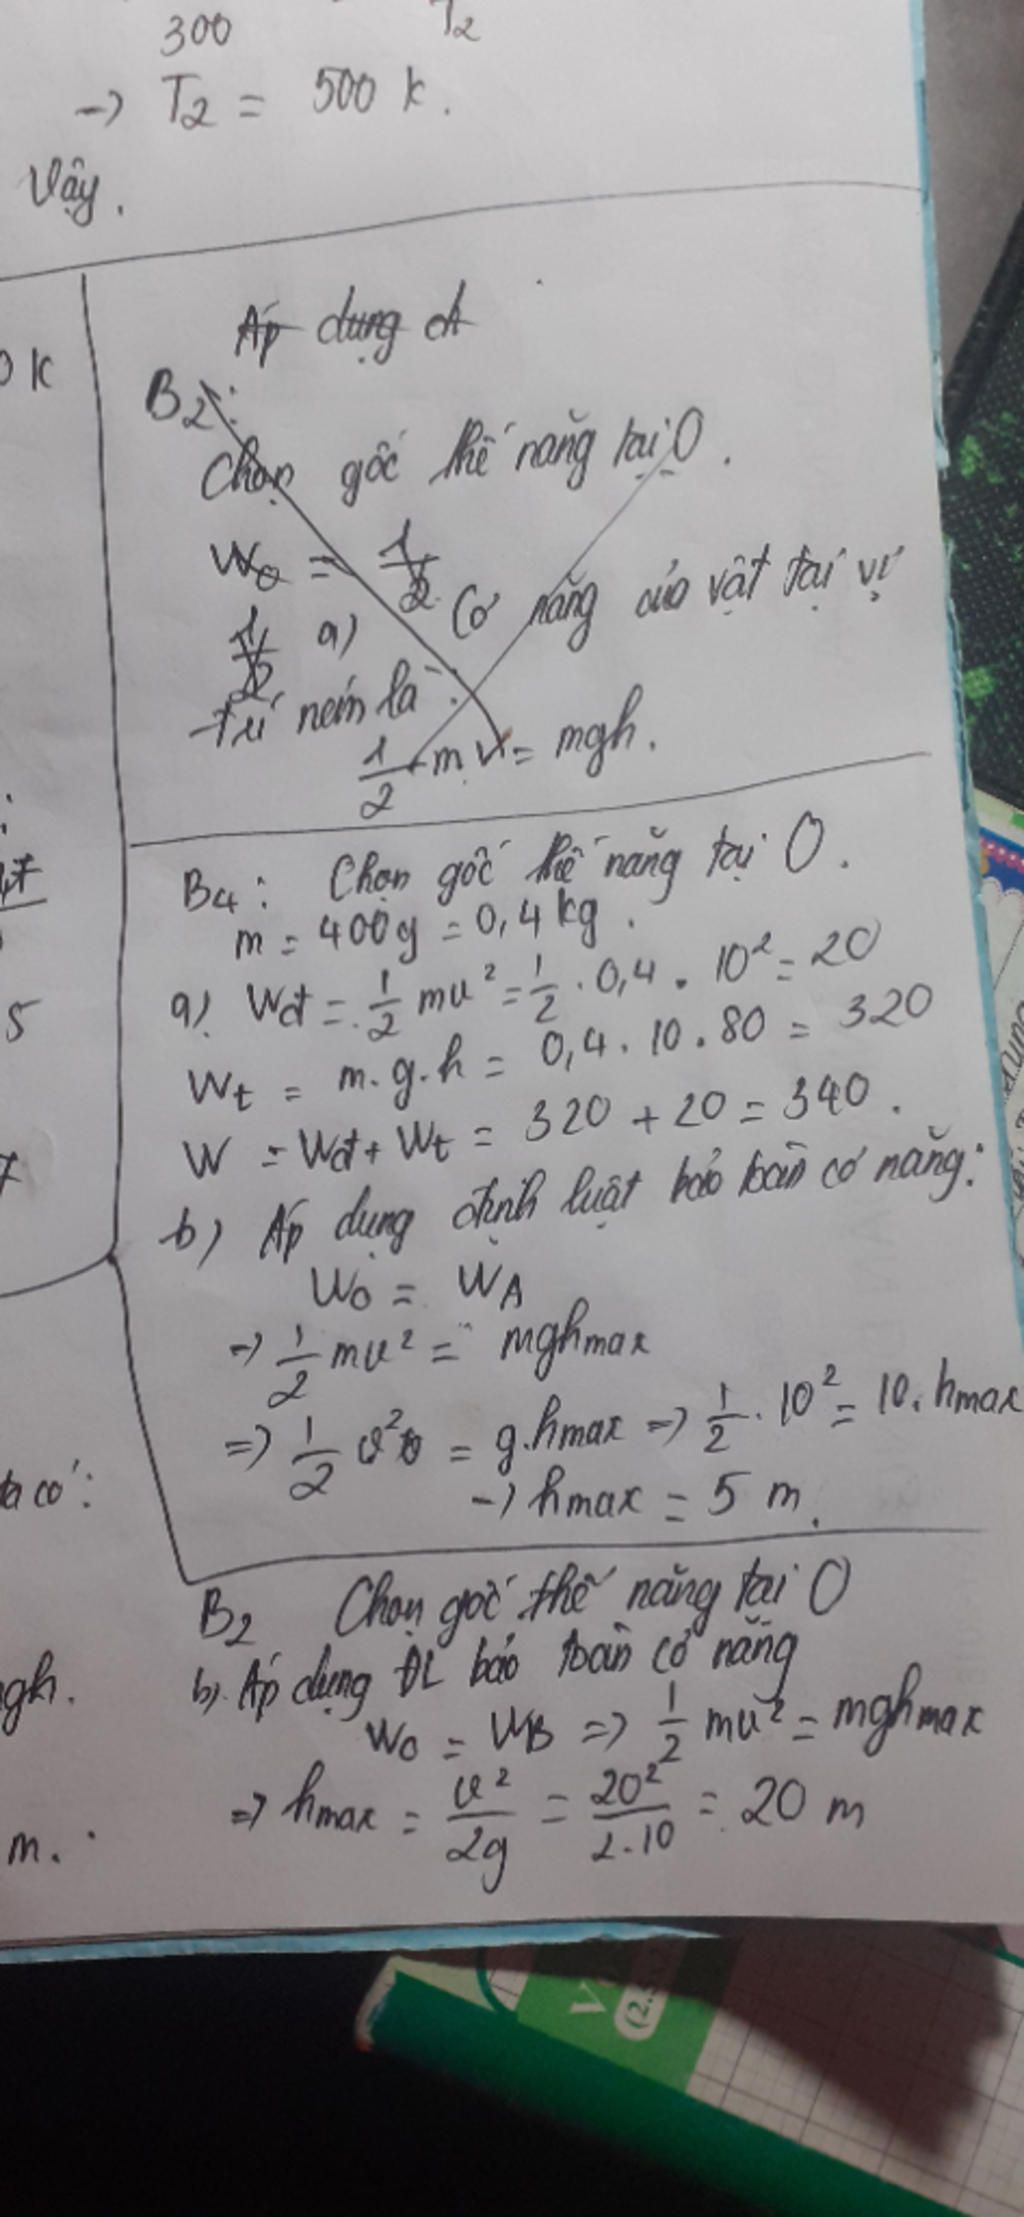 300 T2
-> T2 = 500 K.
Vậy.
Áp dụng
B2:
Chọn gốc thế năng tại O.
W0 = 1/2
a) Cơ năng của vật tại vị
trí ném là:
1/2 mv = mgh.
B4: Chọn gốc thế năng tại O.
m = 400g = 0,4 kg.
a) Wđ = 1/2 mv² = 1/2 . 0,4 . 10² = 20
Wt = m.g.h = 0,4 . 10 . 80 = 320
W = Wđ + Wt = 320 + 20 = 340.
b) Áp dụng định luật bảo toàn cơ năng:
W0 = WA
-> 1/2 mv² = mghmax
=> 1/2 v² = g.hmax => 1/2 . 10² = 10. hmax
-> hmax = 5 m.
B2 Chọn gốc thế năng tại O
b). Áp dụng ĐL bảo toàn cơ năng
W0 = WB => 1/2 mv² = mghmax
=> hmax = v²/2g = 20²/2.10 = 20 m
K
5
ta có:
gh.
m.